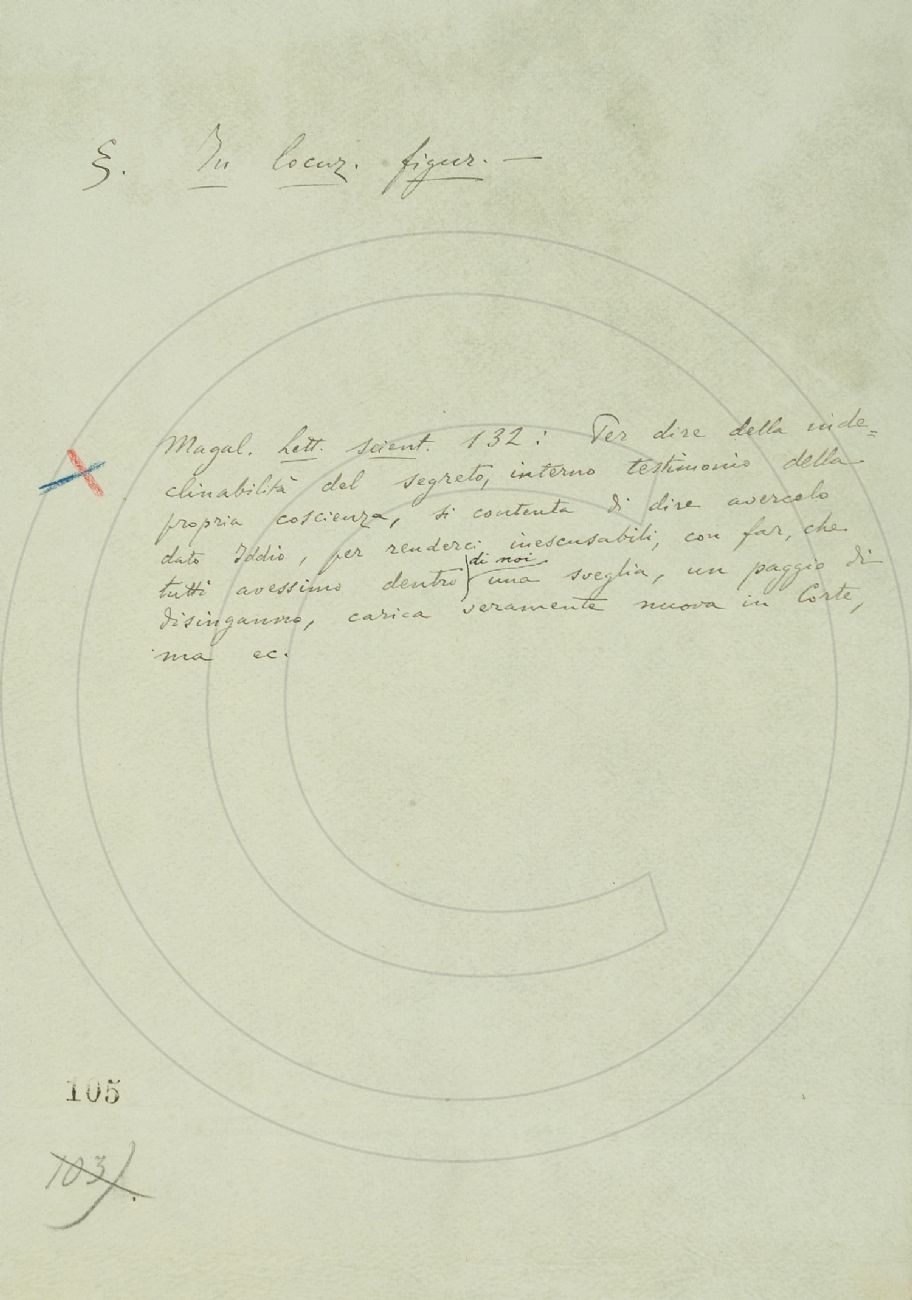 §. In locuz. figur. —
Magal. Lett. scient. 132: Per dire della inde=
clinabilità del segreto, interno testimonio della
propria coscienza, si contenta di dire avercelo
dato Iddio, per renderci inescusabili, con far, che
di noi
tutti avessimo dentro una sveglia, un paggio di
disinganno, carica veramente nuova in Corte,
ma ec.
105
103